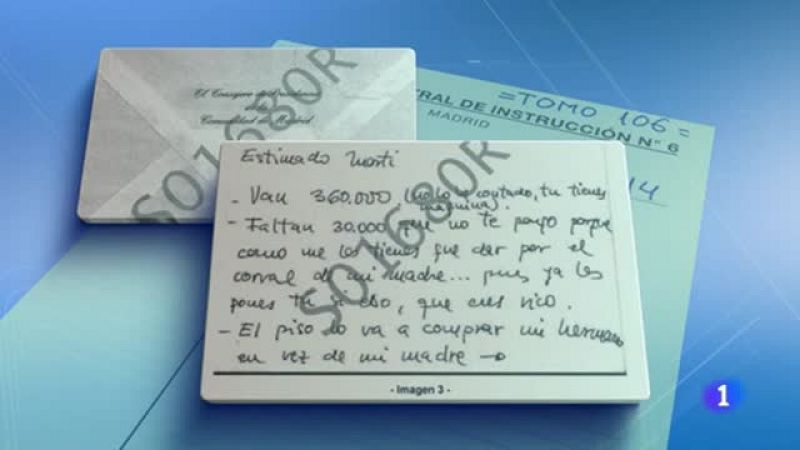 El Consejero de Presidencia
de la
Comunidad de Madrid
SO1680R
=TOMO 106=
TRAL DE INSTRUCCIÓN Nº 6
MADRID
14
Estimado Marti
- Van 360.000, (no lo he contado, tu tienes
máquina).
- Faltan 30.000 que no te pongo porque
como me los tienes que dar por el
corral de mi madre... pues ya los
pones tu si eso, que eres rico.
- El piso lo va a comprar mi hermano
en vez de mi madre →
SO1680R
- Imagen 3 -
1